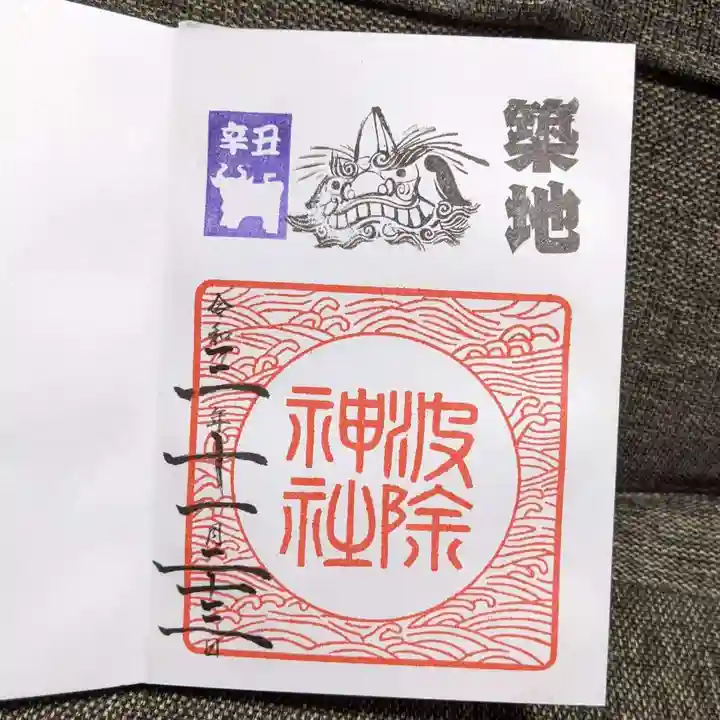 築地
辛丑
波除
神社
令和三年十一月二十三日